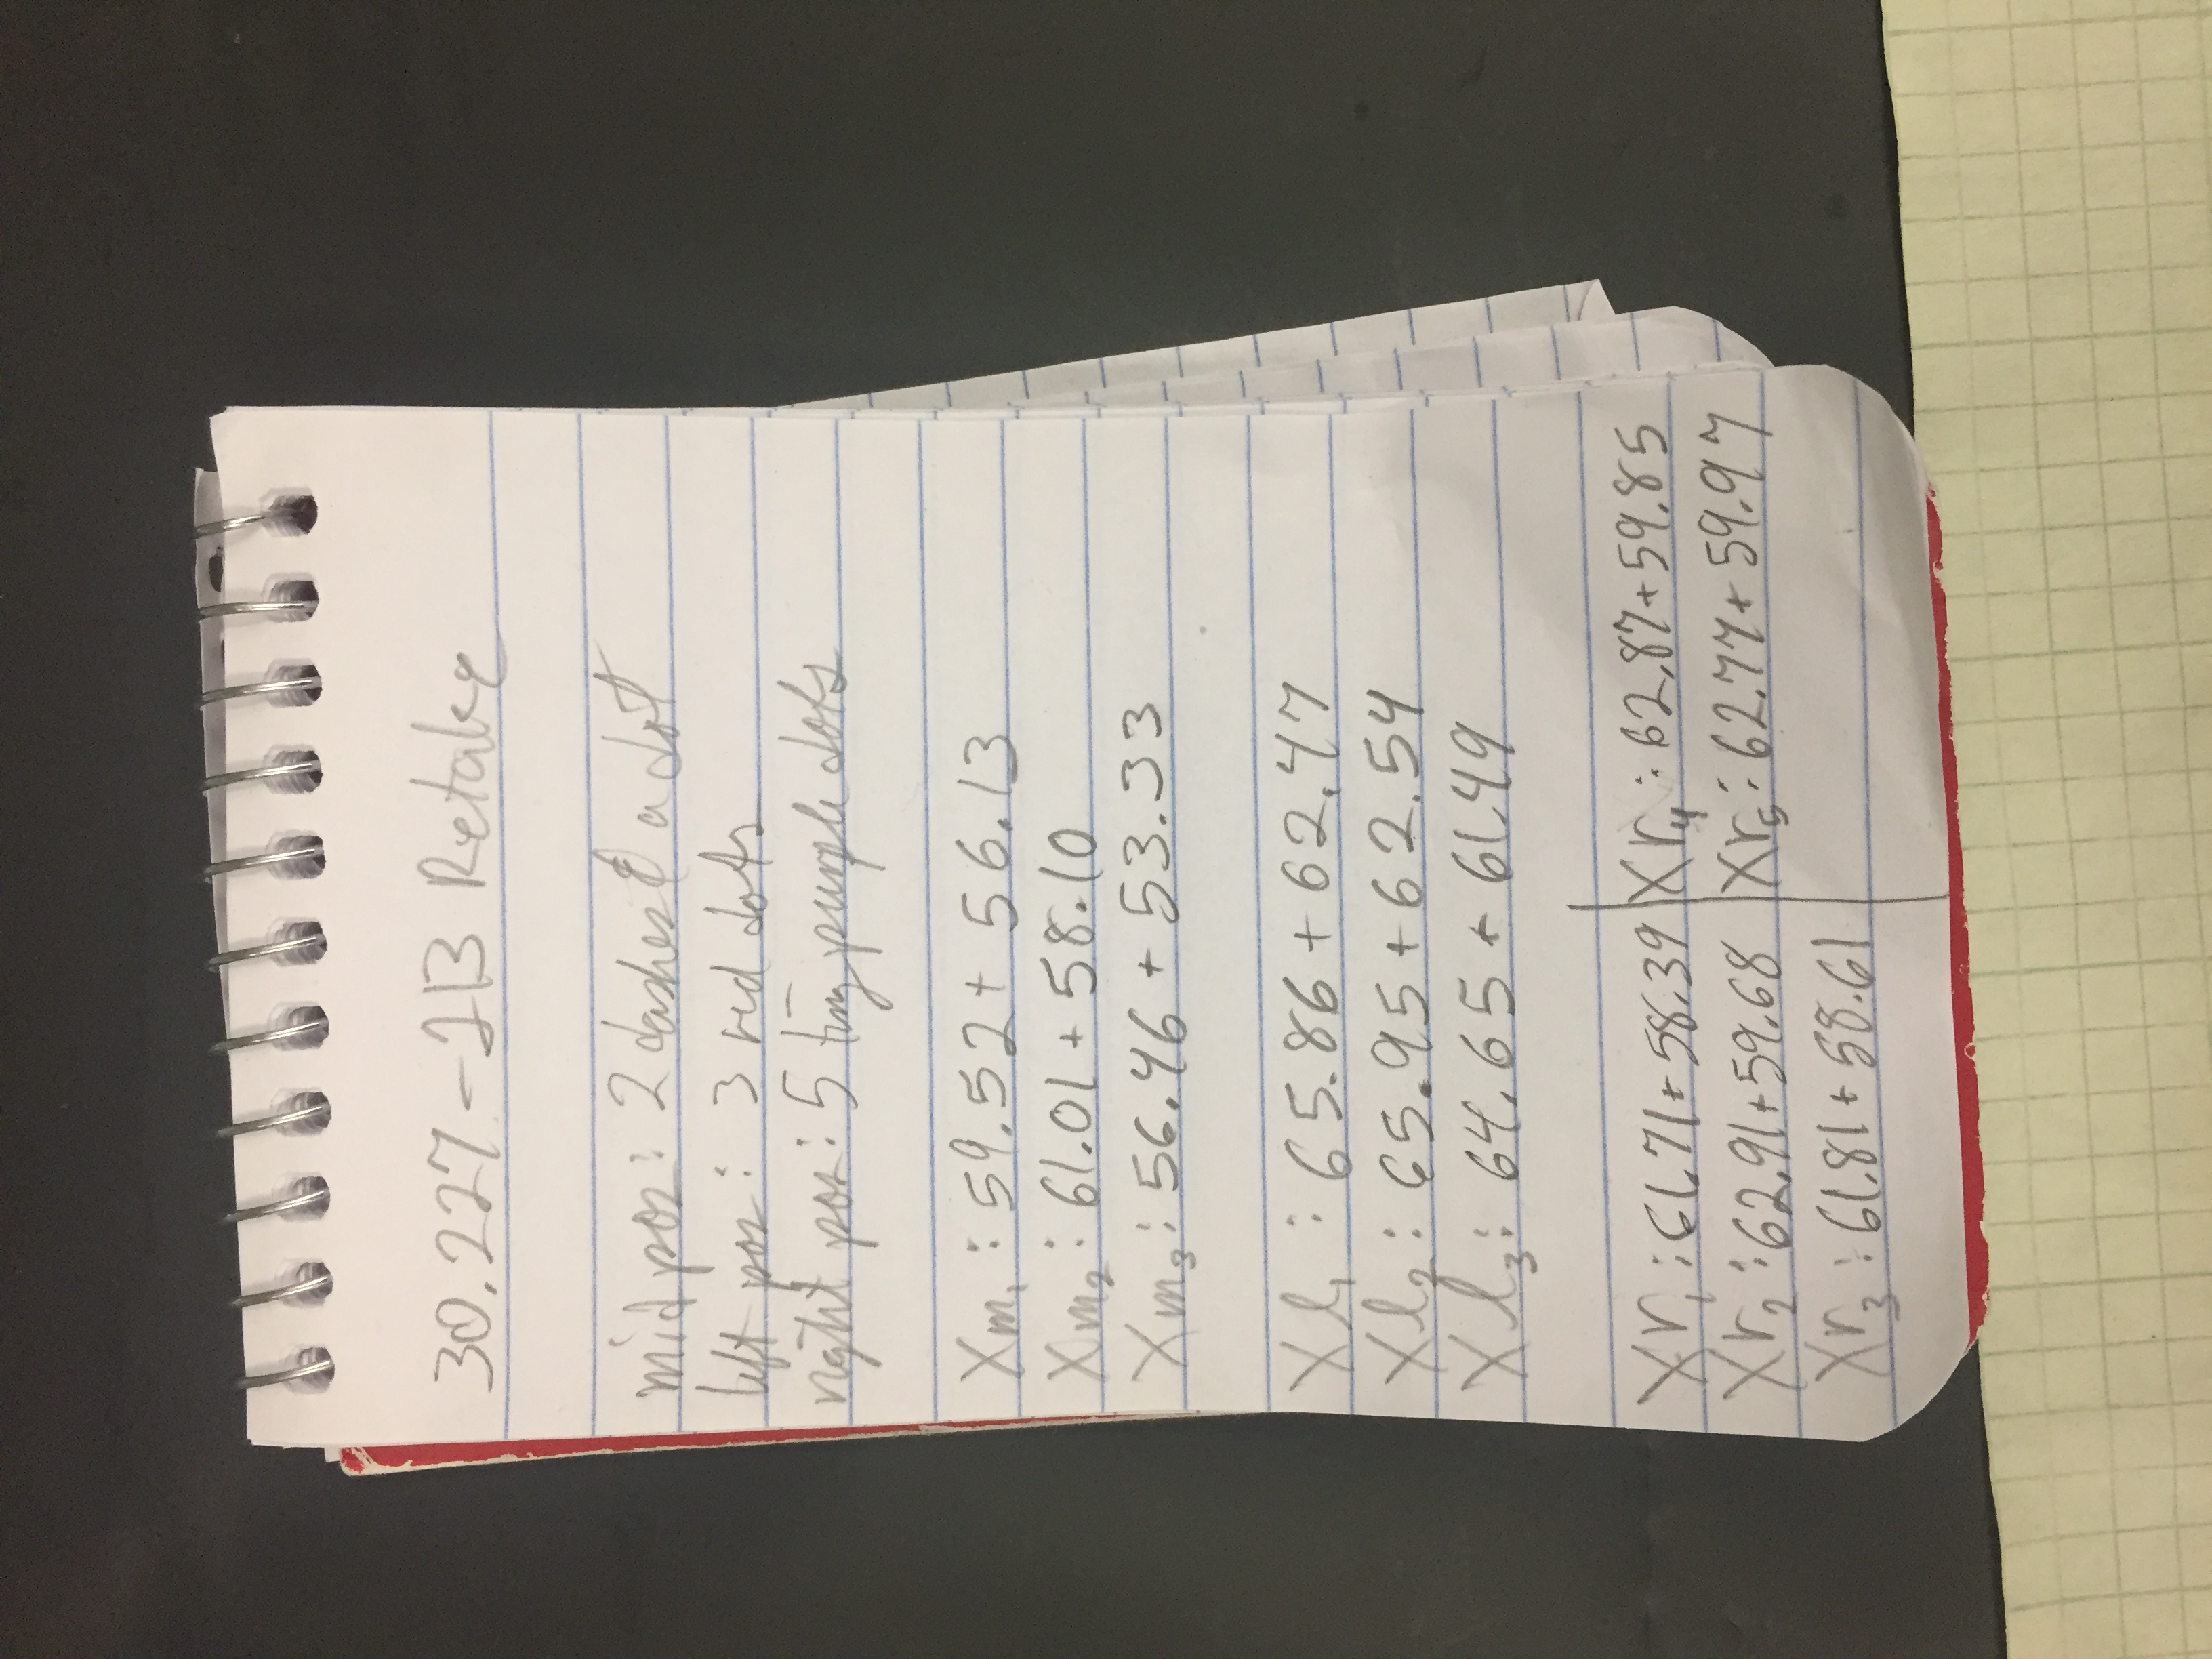 30.227-213 Retake
mid pos: 2 dashes & a dot
left pos: 3 red dots
right pos: 5 tiny purple dots
Xm1: 59.52 + 56.13
Xm2: 61.01 + 58.10
Xm3: 56.46 + 53.33
Xl1: 65.86 + 62.47
Xl2: 65.95 + 62.54
Xl3: 64.65 + 61.49
Xr1: 61.71 + 58.39
Xr2: 62.91 + 59.68
Xr3: 61.81 + 58.61
Xr4: 62.87 + 59.85
Xr5: 62.77 + 59.97